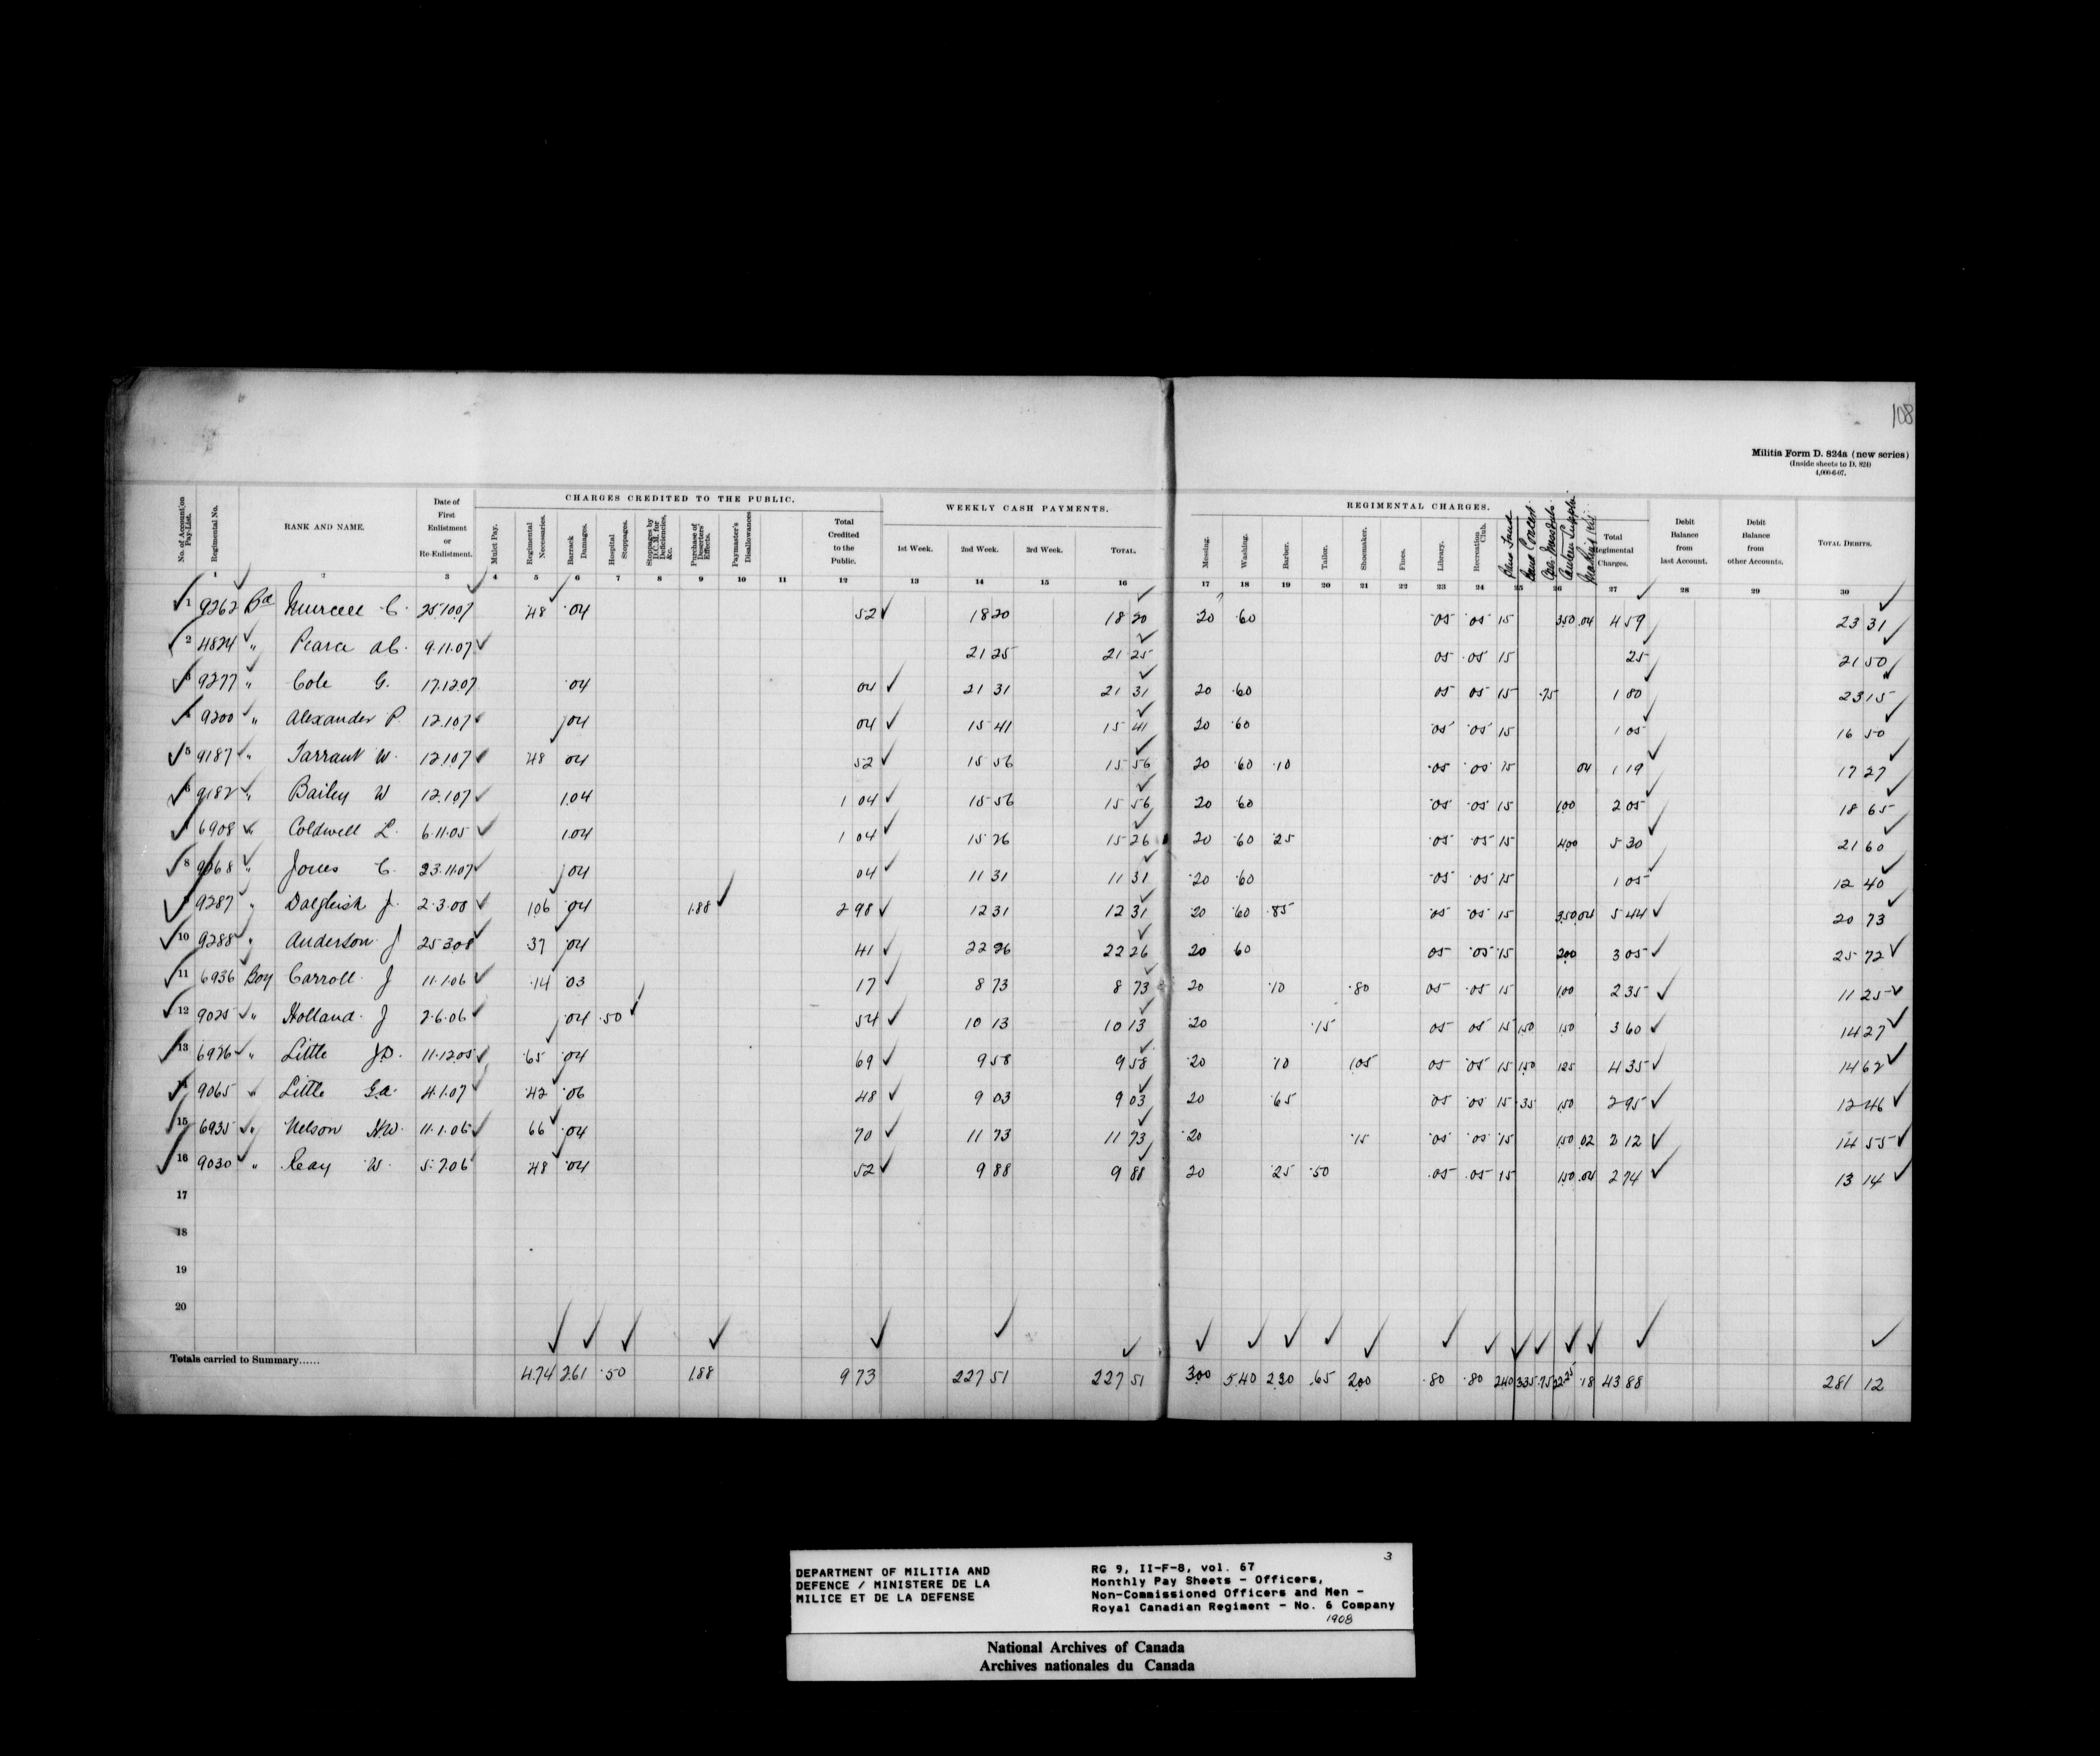 108
Militia Form D. 824a (new series)
(Inside sheets to D. 824)
4,000-6-07.
CHARGES CREDITED TO THE PUBLIC. WEEKLY CASH PAYMENTS. REGIMENTAL CHARGES.
No. of Account on Pay-List. Regimental No. RANK AND NAME. Date of First Enlistment or Re-Enlistment. Mulct Pay. Regimental Necessaries. Barrack Damages. Hospital Stoppages. Stoppages by D.C.M. for Deficiencies, &c. Purchase of Deserters' Effects. Paymaster's Disallowances Total Credited to the Public. 1st Week. 2nd Week. 3rd Week. TOTAL. Messing. Washing. Barber. Tailor. Shoemaker. Fines. Library. Recreation Club. Band Concert Canteen Supplies Total Regimental Charges. Debit Balance from last Account. Debit Balance from other Accounts. TOTAL DEBITS.
1 2 3 4 5 6 7 8 9 10 11 12 13 14 15 16 17 18 19 20 21 22 23 24 25 26 27 28 29 30
1 9262 Bd Murcell C. 25.10.07 .48 .04 52 18 20 18 20 20 .60 .05 .05 15 3.50 .04 4 59 23 31
2 4824 " Pearce A.C. 9.11.07 21 25 21 25 05 .05 15 25 21 50
3 9277 " Cole G. 17.12.07 .04 04 21 31 21 31 20 .60 05 05 15 .75 1 80 23 15
4 9200 " Alexander P. 12.1.07 .04 04 15 41 15 41 20 .60 .05 .05 15 1 05 16 50
5 9187 " Tarrant W. 12.1.07 .48 04 52 15 56 15 56 20 .60 .10 .05 .05 15 04 1 19 17 27
6 9182 " Bailey W 12.1.07 1.04 1 04 15 56 15 56 20 .60 .05 .05 15 1.00 2 05 18 65
7 6908 " Coldwell L. 6.11.05 1.04 1 04 15 26 15 26 20 .60 .25 .05 .05 15 4.00 5 30 21 60
8 9268 " Jones C. 23.11.07 .04 04 11 31 11 31 .20 .60 .05 .05 .15 1 05 12 40
9 9287 " Dalgleish J. 2.3.08 1.06 .04 1.88 2 98 12 31 12 31 20 .60 .85 .05 .05 15 3.50 .04 5 44 20 73
10 9288 " Anderson J 25.3.08 37 .04 41 22 26 22 26 20 60 05 .05 .15 2.00 3 05 25 72
11 6936 Boy Carroll J 11.1.06 .14 03 17 8 73 8 73 20 .10 .80 05 .05 15 1.00 2 35 11 25
12 9025 " Holland J 2.6.06 .04 .50 54 10 13 10 13 20 .15 05 05 15 1.50 1.50 3 60 14 27
13 6926 " Little J.D. 11.12.05 .65 .04 69 9 58 9 58 .20 .10 1.05 05 .05 15 1.50 1.25 4 35 14 62
14 9065 " Little G.A. 4.1.07 .42 .06 48 9 03 9 03 20 .65 .05 .05 15 .35 1.50 2 95 12 46
15 6935 " Nelson H.W. 11.1.06 66 .04 70 11 73 11 73 .20 .15 .05 .05 .15 1.50 .02 2 12 14 55
16 9030 " Reay W. 5.7.06 .48 .04 52 9 88 9 88 20 .25 .50 .05 .05 15 1.50 .04 2 74 13 14
17
18
19
20
Totals carried to Summary...... 4.74 2.61 .50 1.88 9 73 227 51 227 51 3.00 5.40 2.90 .65 2.00 .80 .80 2.40 3.35 .75 22.25 .18 43 88 281 12
DEPARTMENT OF MILITIA AND
DEFENCE / MINISTERE DE LA
MILICE ET DE LA DEFENSE
3
RG 9, II-F-8, vol. 67
Monthly Pay Sheets - Officers,
Non-Commissioned Officers and Men -
Royal Canadian Regiment - No. 6 Company
1908
National Archives of Canada
Archives nationales du Canada